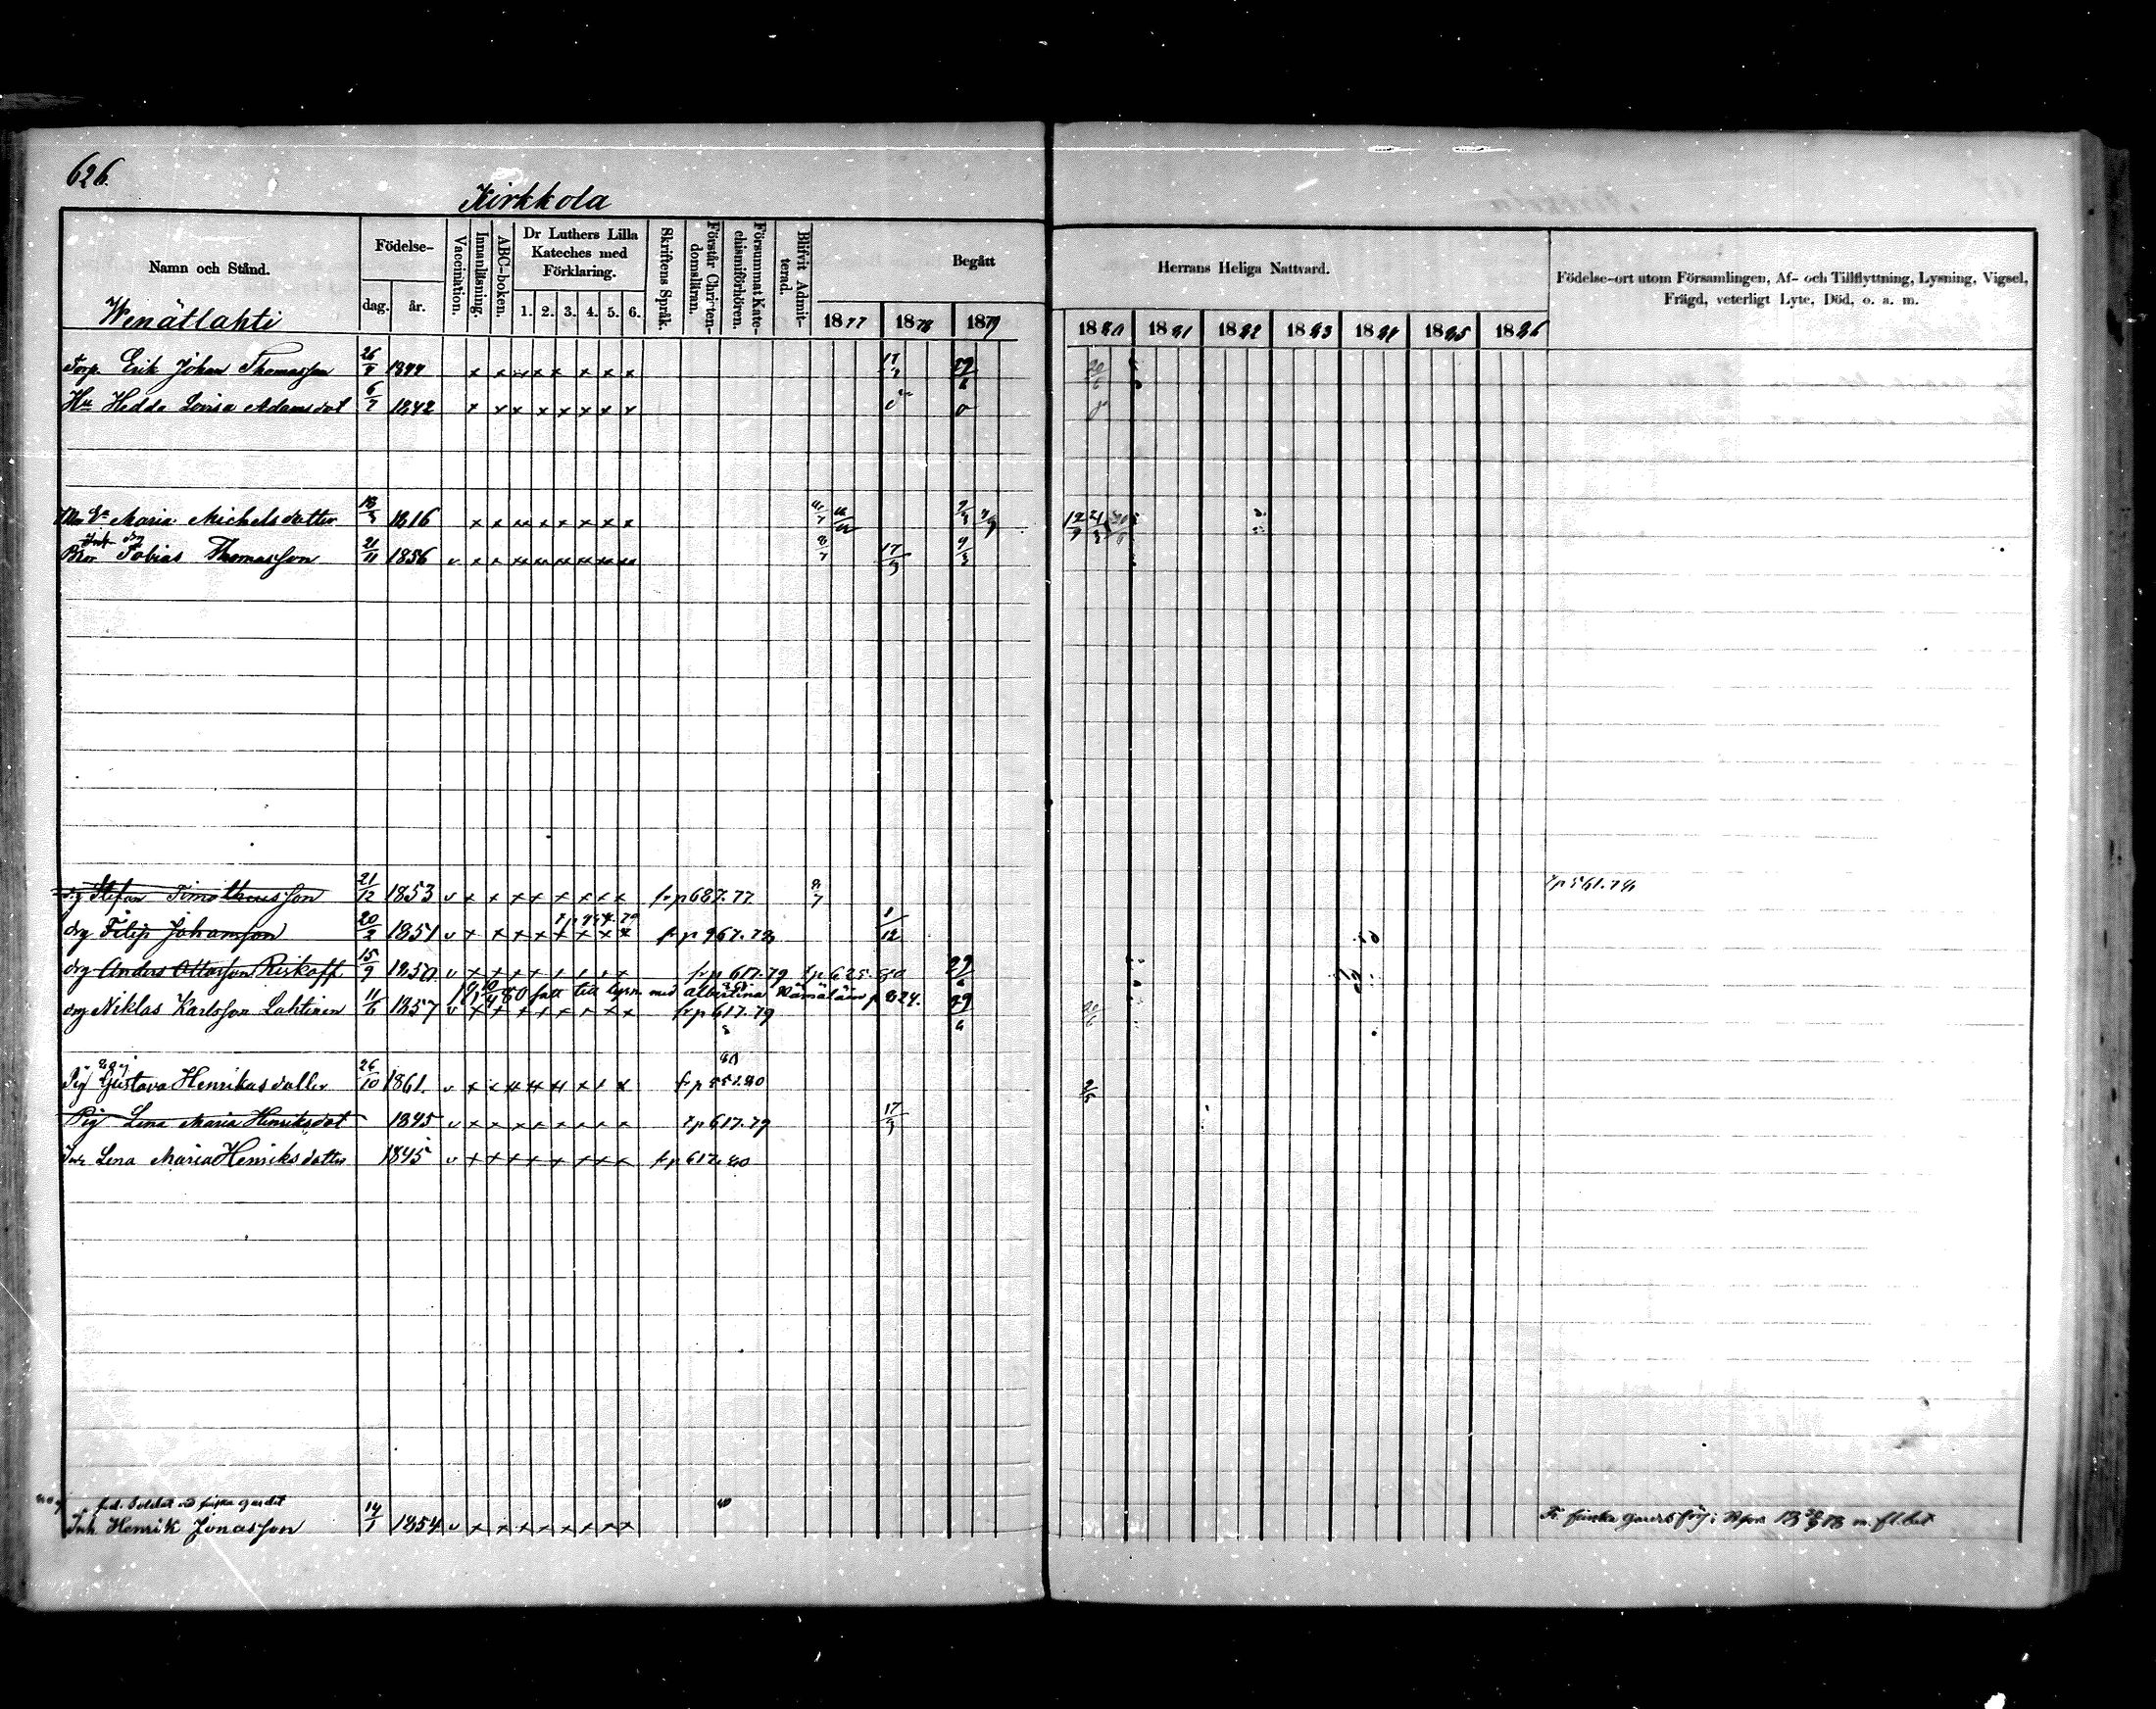 626.
Kirkkola
Namn och Stånd.
Födelse-
dag.
år.
Vaccination.
Innanläsning.
ABC-boken.
Dr Luthers Lilla
Kateches med
Förklaring.
1. 2. 3. 4. 5. 6.
Skriftens Språk.
Förstår Christen-
domsläran.
Försummat Kate-
chismiförhören.
Blifvit Admit-
terad.
Begått
Herrans Heliga Nattvard.
Födelse-ort utom Församlingen, Af- och Tillflyttning, Lysning, Vigsel,
Frägd, veterligt Lyte, Död, o. a. m.
1877 1878 1879 1880 1881 1882 1883 1884 1885 1886
Wenätlahti
Torp. Erik Johan Thomasson 1844 x x x x x x x x 17 29/6 20/6
Hu Hedda Lovisa Adamsdot 6/7 1842 x x x x x x x x
Maria Michelsdotter 18/3 1816 x x x x x x x x
Bror Tobias Thomasson 21/11 1856 v x x x x x x x x 8/7 17/3 9/3
drg Stefan Timotheusson 21/12 1853 v x x x x x x x x fr p 687.77 8/7 t p 561.78
drg Filip Johansson 20/2 1851 v x x x x x x x x fr p 967.78 1/12
drg Anders Ottosson Riskoff 15/9 1850 v x x x x x x x x fr p 617.79 t p 625.80 29/6
80 fått till lysn. med Albertina Hämäläin p 824.
drg Niklas Karlsson Lahtinen 11/6 1857 v x x x x x x x x fr p 617.79 29/6 20/6
Pig Gustava Henriksdotter 26/10 1861. v x x x x x x x x fr p 551.80
Pig Lena Maria Henriksdot 1845 v x x x x x x x x t p 617.79 17/3
Lena Maria Henriksdotter 1845 v x x x x x x x x fr p 617.80
f.d. Soldat vid finska gardet
Inh Henrik Jonasson 14/1 1854 v x x x x x x x x